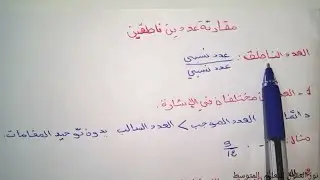 مقارنة عددين ناطقين
العدد الناطق: عدد نسبي
عدد نسبي
1- العد مختلفان في الإشارة.
العدد الموجب > العدد السالب بدون توحيد المقامات.
مثال:
9
14